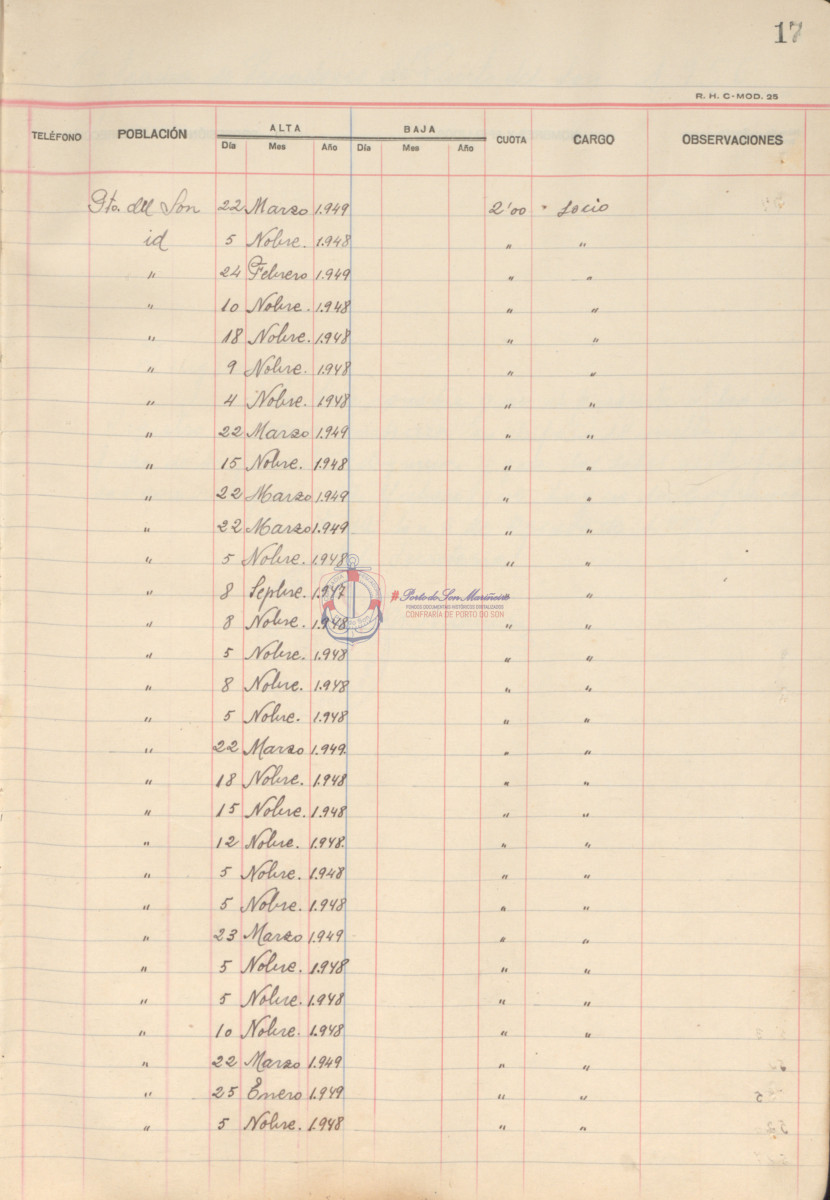 17
R. H. C-MOD. 25
TELÉFONO POBLACIÓN ALTA BAJA CUOTA CARGO OBSERVACIONES
Día Mes Año Día Mes Año
Pto. del Son 22 Marzo 1.949 2'00 " Socio
id 5 Nobre. 1.948 " "
" 24 Febrero 1.949 " "
" 10 Nobre. 1.948 " "
" 18 Nobre. 1.948 " "
" 9 Nobre. 1.948 " "
" 4 Nobre. 1.948 " "
" 22 Marzo 1.949 " "
" 15 Nobre. 1.948 " "
" 22 Marzo 1.949 " "
" 22 Marzo 1.949 " "
" 5 Nobre. 1.948 " "
" 8 Sepbre. 1.947 "
#Porto do Son Mariñeiro
FONDOS DOCUMENTAIS HISTÓRICOS DIXITALIZADOS
CONFRARÍA DE PORTO DO SON
" 8 Nobre. 1.948 " "
" 5 Nobre. 1.948 " "
" 8 Nobre. 1.948 " "
" 5 Nobre. 1.948 " "
" 22 Marzo 1.949. " "
" 18 Nobre. 1.948 " "
" 15 Nobre. 1.948 " "
" 12 Nobre. 1.948. " "
" 5 Nobre. 1.948 " "
" 5 Nobre. 1.948 " "
" 23 Marzo 1.949 " "
" 5 Nobre. 1.948 " "
" 5 Nobre. 1.948 " "
" 10 Nobre. 1.948 " "
" 22 Marzo 1.949 " "
" 25 Enero 1.949 " "
" 5 Nobre. 1.948 " "